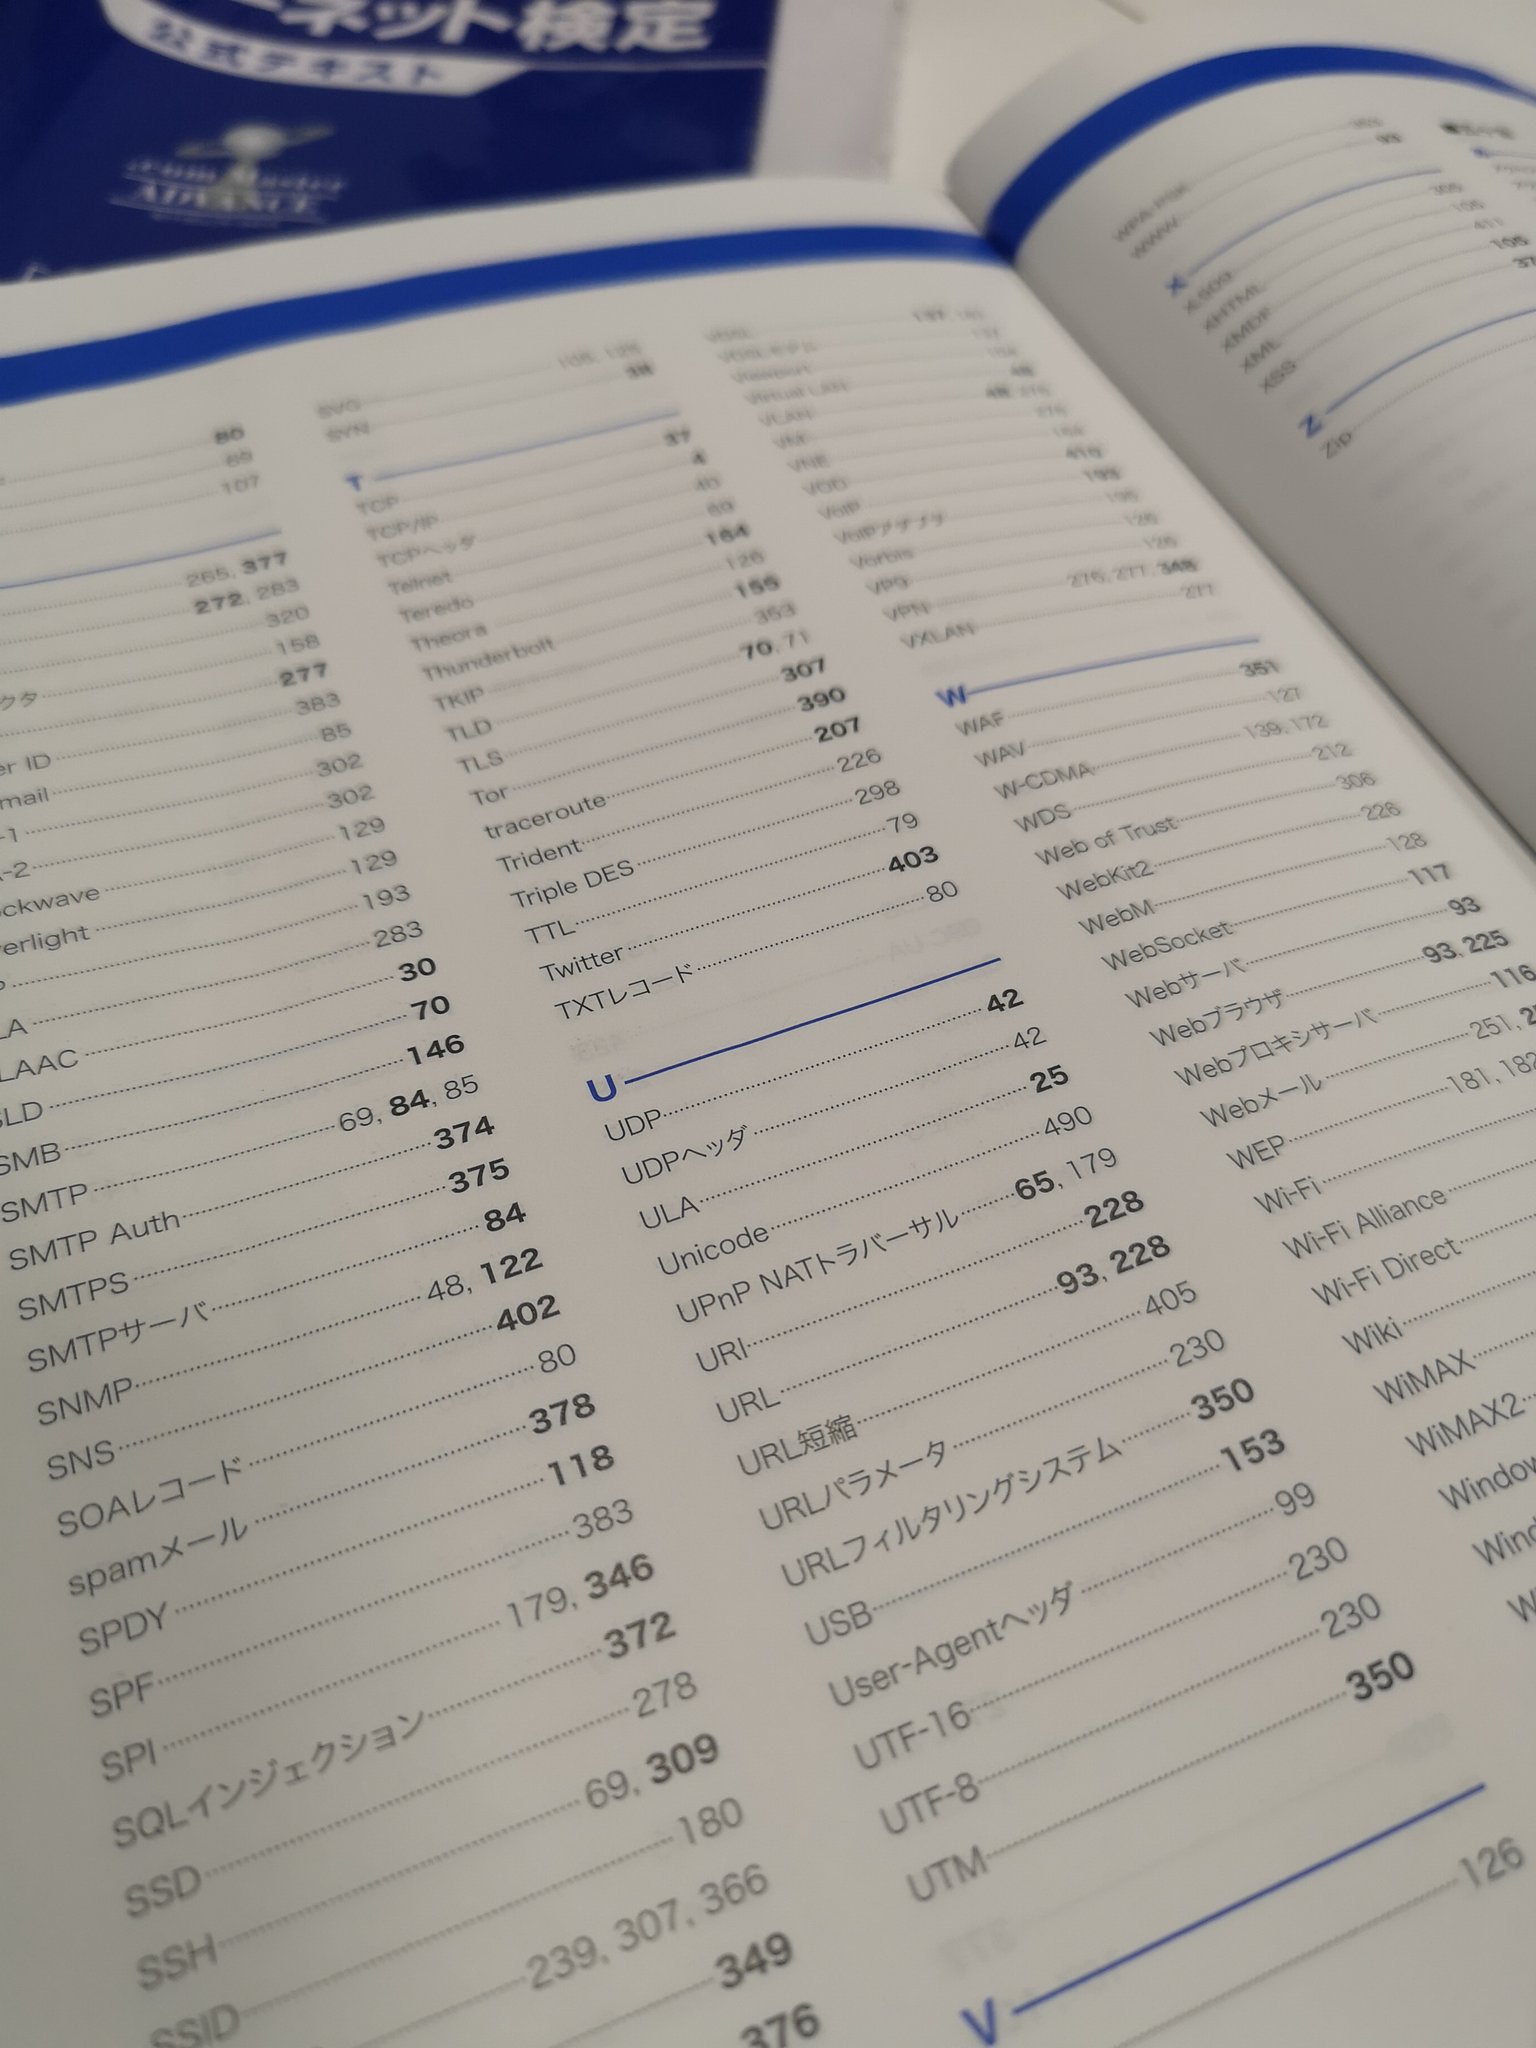 ーネット検定
公式テキスト
ADVANCE
80
69
107
265, 377
272, 283
320
158
クタ 277
er ID 383
mail 85
-1 302
-2 302
ckwave 129
erlight 129
193
LA 283
LAAC 30
LD 70
SMB 146
SMTP 69, 84, 85
SMTP Auth 374
SMTPS 375
SMTPサーバ 84
SNMP 48, 122
SNS 402
SOAレコード 80
spamメール 378
SPDY 118
SPF 383
SPI 179, 346
SQLインジェクション 372
SSD 278
SSH 69, 309
SSID 180
239, 307, 366
349
376
SVG
SYN 38
T
TCP 37
TCP/IP 4
TCPヘッダ 40
Telnet 69
Teredo 164
Theora 126
Thunderbolt 155
TKIP 353
TLD 70, 71
TLS 307
Tor 390
traceroute 207
Trident 226
Triple DES 298
TTL 79
Twitter 403
TXTレコード 80
U
UDP 42
UDPヘッダ 42
ULA 25
Unicode 490
UPnP NATトラバーサル 65, 179
URI 228
URL 93, 228
URL短縮 405
URLパラメータ 230
URLフィルタリングシステム 350
USB 153
User-Agentヘッダ 99
UTF-16 230
UTF-8 230
UTM 350
V
126
Virtual LAN 48
VLAN
VM
VNE
VOD
VoIP
Vorbis
VPS
VPN
VXLAN 277
W
WAF 351
WAV 127
W-CDMA 139, 172
WDS 212
Web of Trust 306
WebKit2 226
WebM 128
WebSocket 117
Webサーバ 93
Webブラウザ 93, 225
Webプロキシサーバ 116
Webメール 251
WEP 181, 182
Wi-Fi
Wi-Fi Alliance
Wi-Fi Direct
Wiki
WiMAX
WiMAX2
Window
Wind
W
WPA-PSK
WWW 93
X
X.509
XHTML
XMDF
XML 105
XSS
Z
Zip